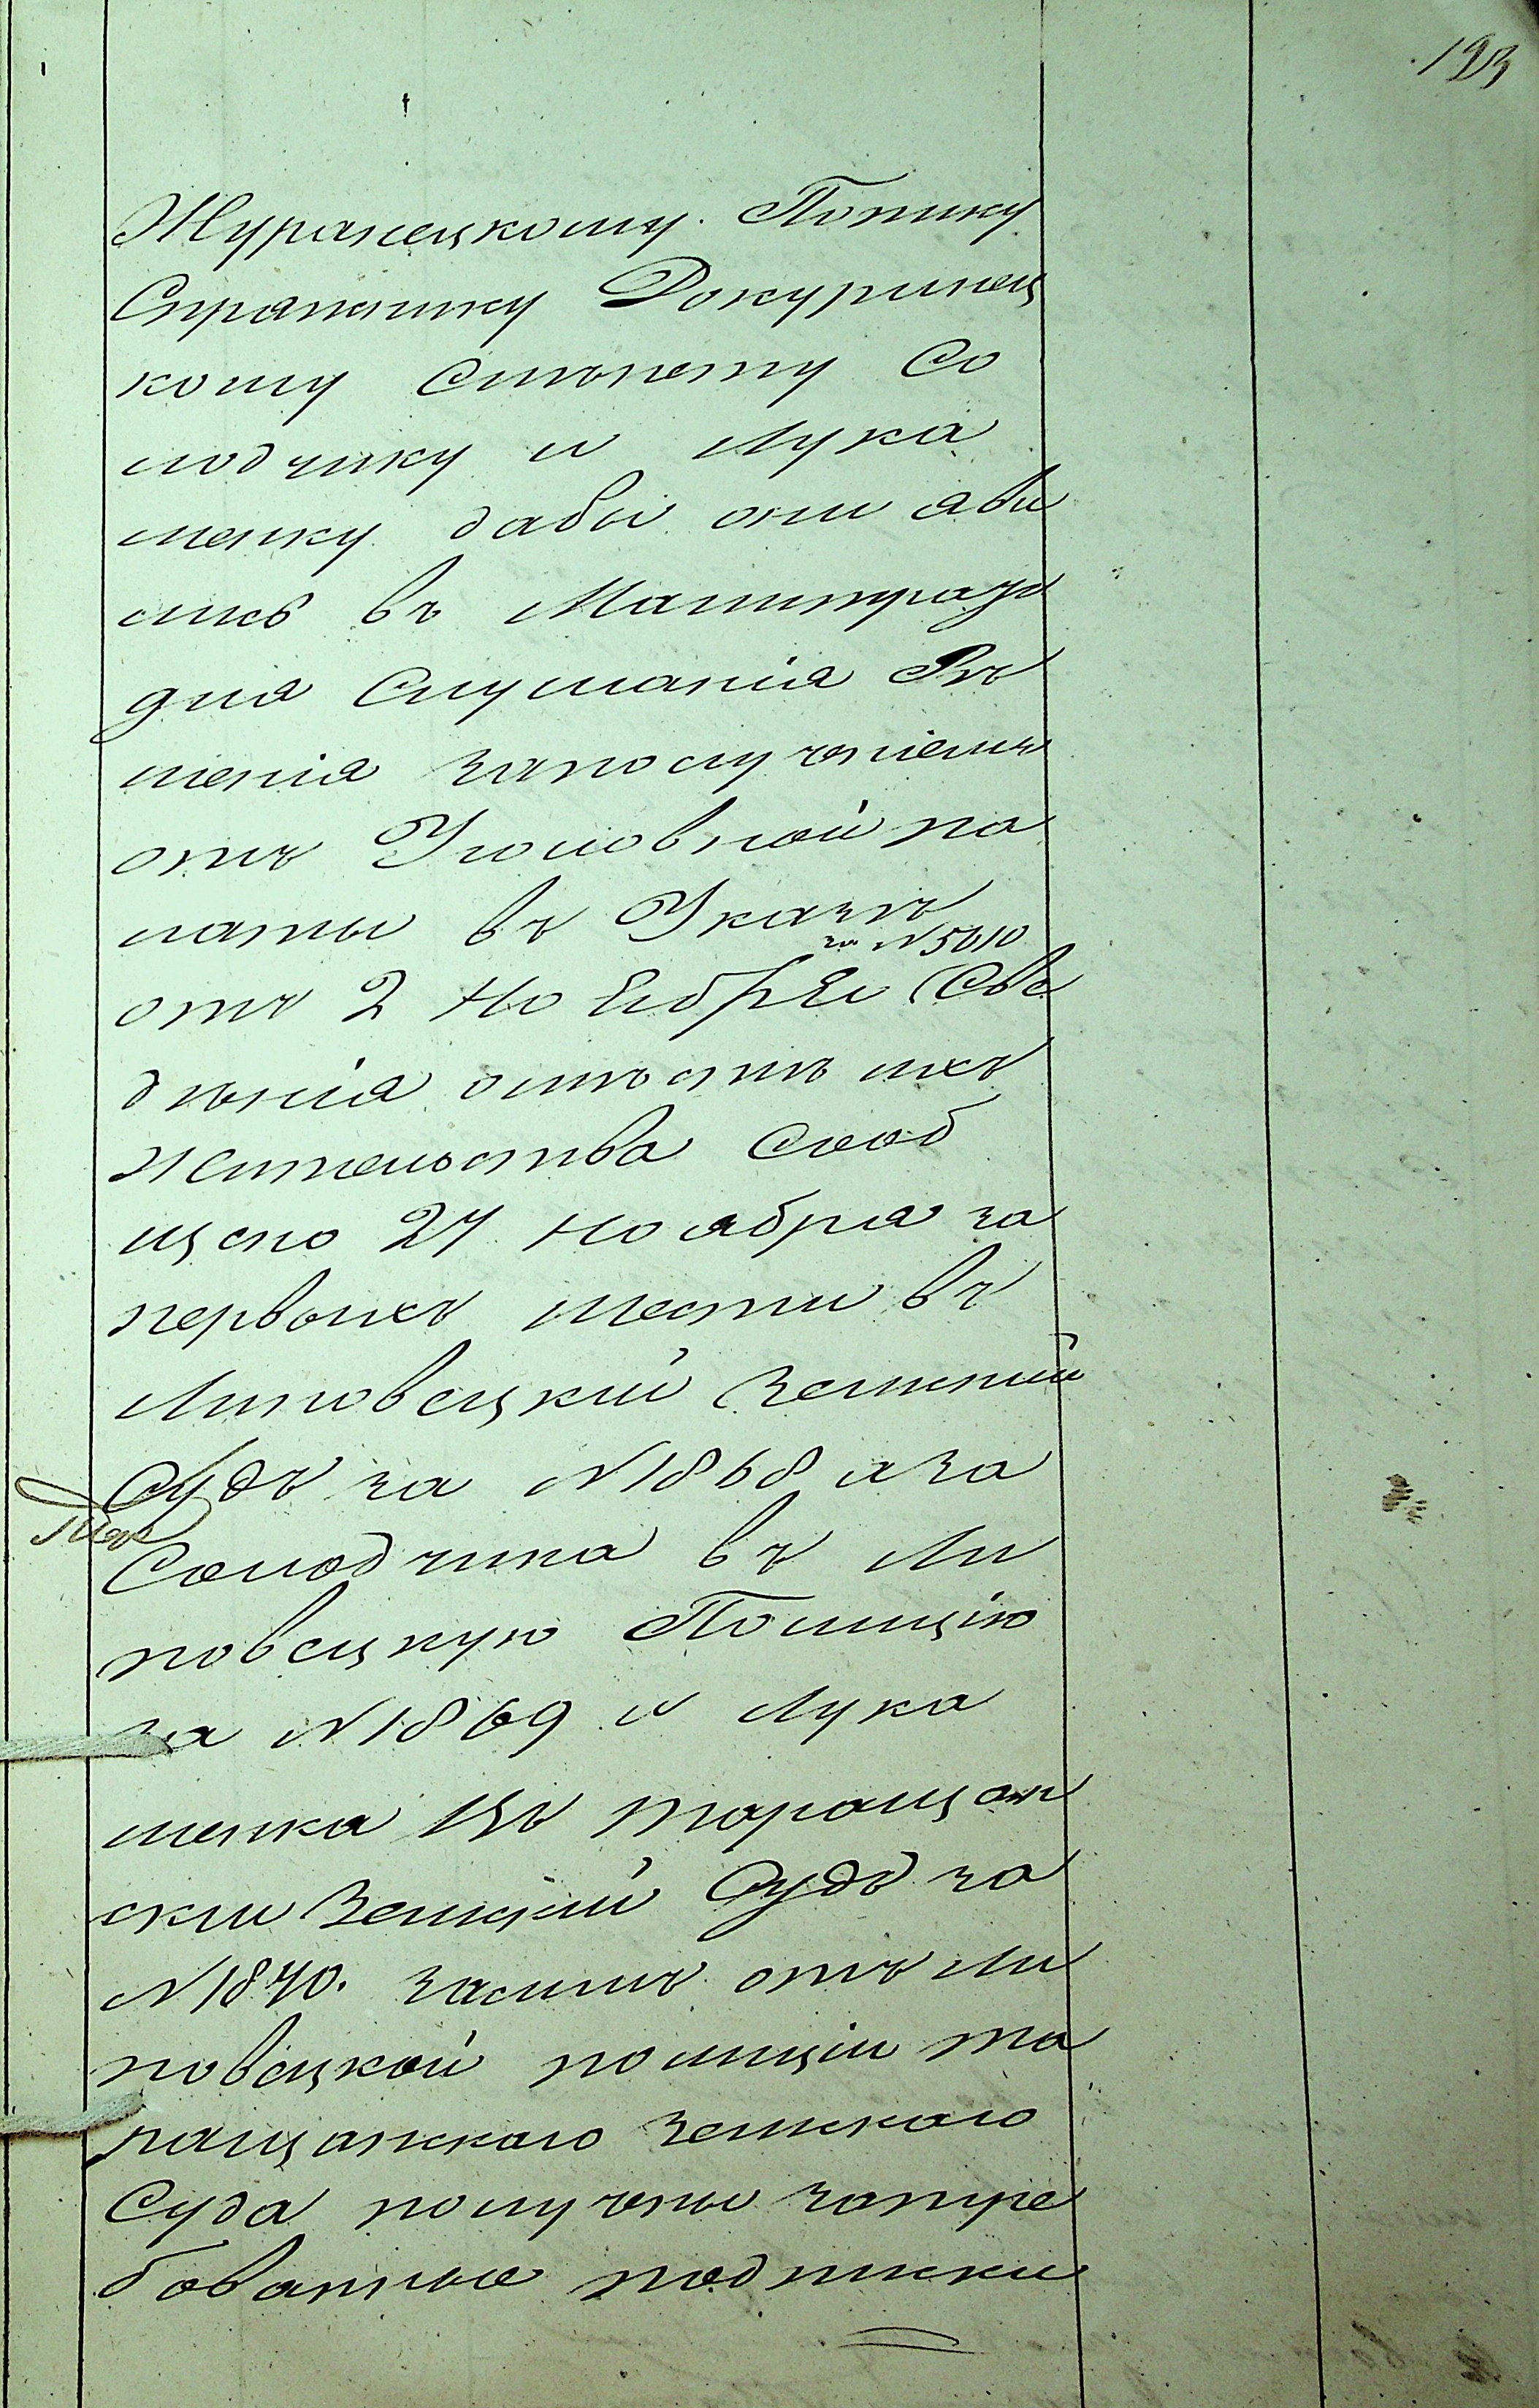 193
Журажецкому Попику
Спражнику Докуринец
кому Сточнему Со
лодчику и Лука
шенку дабы они яви
лисъ въ Магистратъ
для Слушанія Рѣ
шенія заполученіемъ
отъ Уголовной па
латы въ Указѣ
за N 5610
отъ 2 Ноября Свѣ
дѣнія омѣстѣ ихъ
Жительства Сооб
щено 27 Ноября за
первыхъ шести въ
Липовецкій Земский
Судъ за N 1868 а за
Солодчика въ Ли
повецкую Полицію
за N 1869 и Лука
шенка Въ таращан
скии Земский Судъ за
N 1870. засимъ отъ Ли
повецкой полиціи та
ращанскаго Земскаго
Суда получены затре
бованные подписки